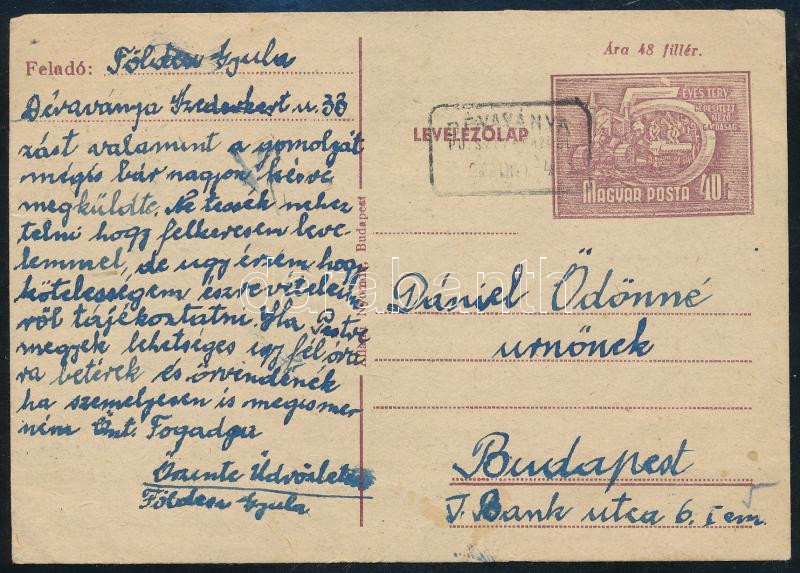 Feladó: Földesi Gyula
Dévaványa Szederkert u. 33
zást valamint a gomolyát
mégis bár nagyon késve
megküldte. Ne tessék nehez
telni hogy felkeresem leve-
lemmel, de ugy érzem hogy
kötelességem észrevételeim
ről tájékoztatni. Ha Pestre
megyek lehetséges egy fél órá
ra betérek és örvendenék
ha személyesen is megismer
ném Önt. Fogadja
Őszinte Üdvözletem
Földesi Gyula
Állami Nyomda, Budapest
Ára 48 fillér.
LEVELEZŐLAP
DÉVAVÁNYA
5 ÉVES TERV
GÉPESÍTETT
MEZŐ
GAZDASÁG
MAGYAR POSTA 40f
Dániel Ödönné
urnőnek
Budapest
V. Bank utca 6. I em.
darabanth